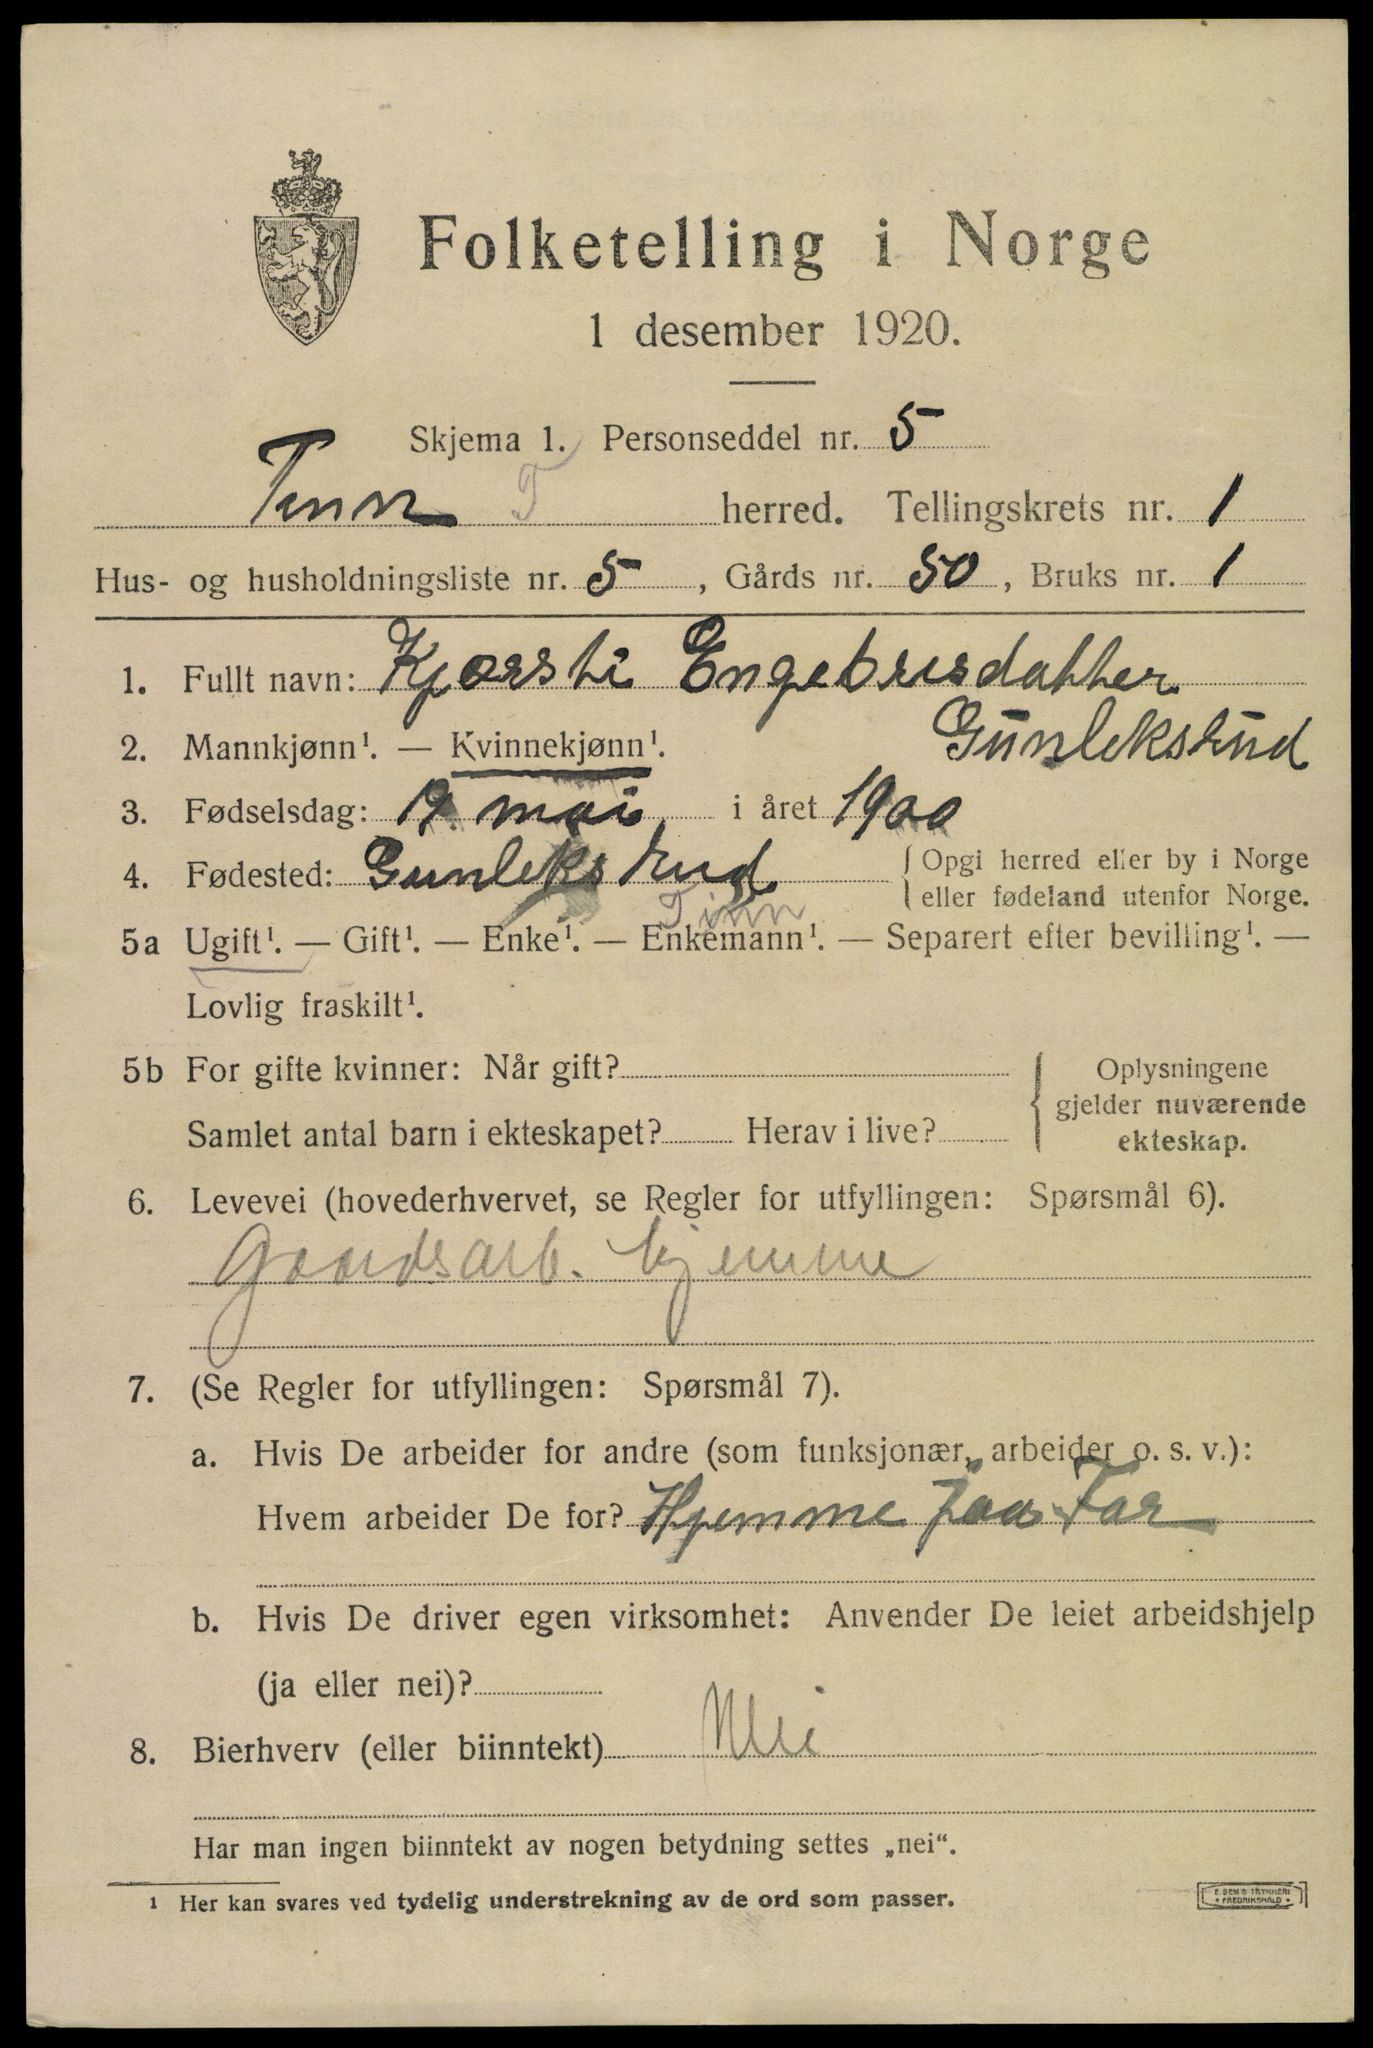 Folketelling i Norge
1 desember 1920.
Skjema 1. Personseddel nr. 5
Tinn T herred. Tellingskrets nr. 1
Hus- og husholdningsliste nr. 5, Gårds nr. 50, Bruks nr. 1
1. Fullt navn: Kjersti Engebrisdatter
Gunleksrud
2. Mannkjønn¹. — Kvinnekjønn¹.
3. Fødselsdag: 19. mai i året 1900
4. Fødested: Gunleksrud { Opgi herred eller by i Norge
eller fødeland utenfor Norge.
Tinn
5a Ugift¹. — Gift¹. — Enke¹. — Enkemann¹. — Separert efter bevilling¹. —
Lovlig fraskilt¹.
5b For gifte kvinner: Når gift? { Oplysningene
gjelder nuværende
ekteskap.
Samlet antal barn i ekteskapet? Herav i live?
6. Levevei (hovederhvervet, se Regler for utfyllingen: Spørsmål 6).
Gaardsarb. hjemme
7. (Se Regler for utfyllingen: Spørsmål 7).
a. Hvis De arbeider for andre (som funksjonær, arbeider o. s. v.):
Hvem arbeider De for? Hjemme paa Far
b. Hvis De driver egen virksomhet: Anvender De leiet arbeidshjelp
(ja eller nei)?
8. Bierhverv (eller biinntekt) Nei
Har man ingen biinntekt av nogen betydning settes „nei“.
1 Her kan svares ved tydelig understrekning av de ord som passer.
E. SEM'S TRYKKERI
FREDRIKSHALD